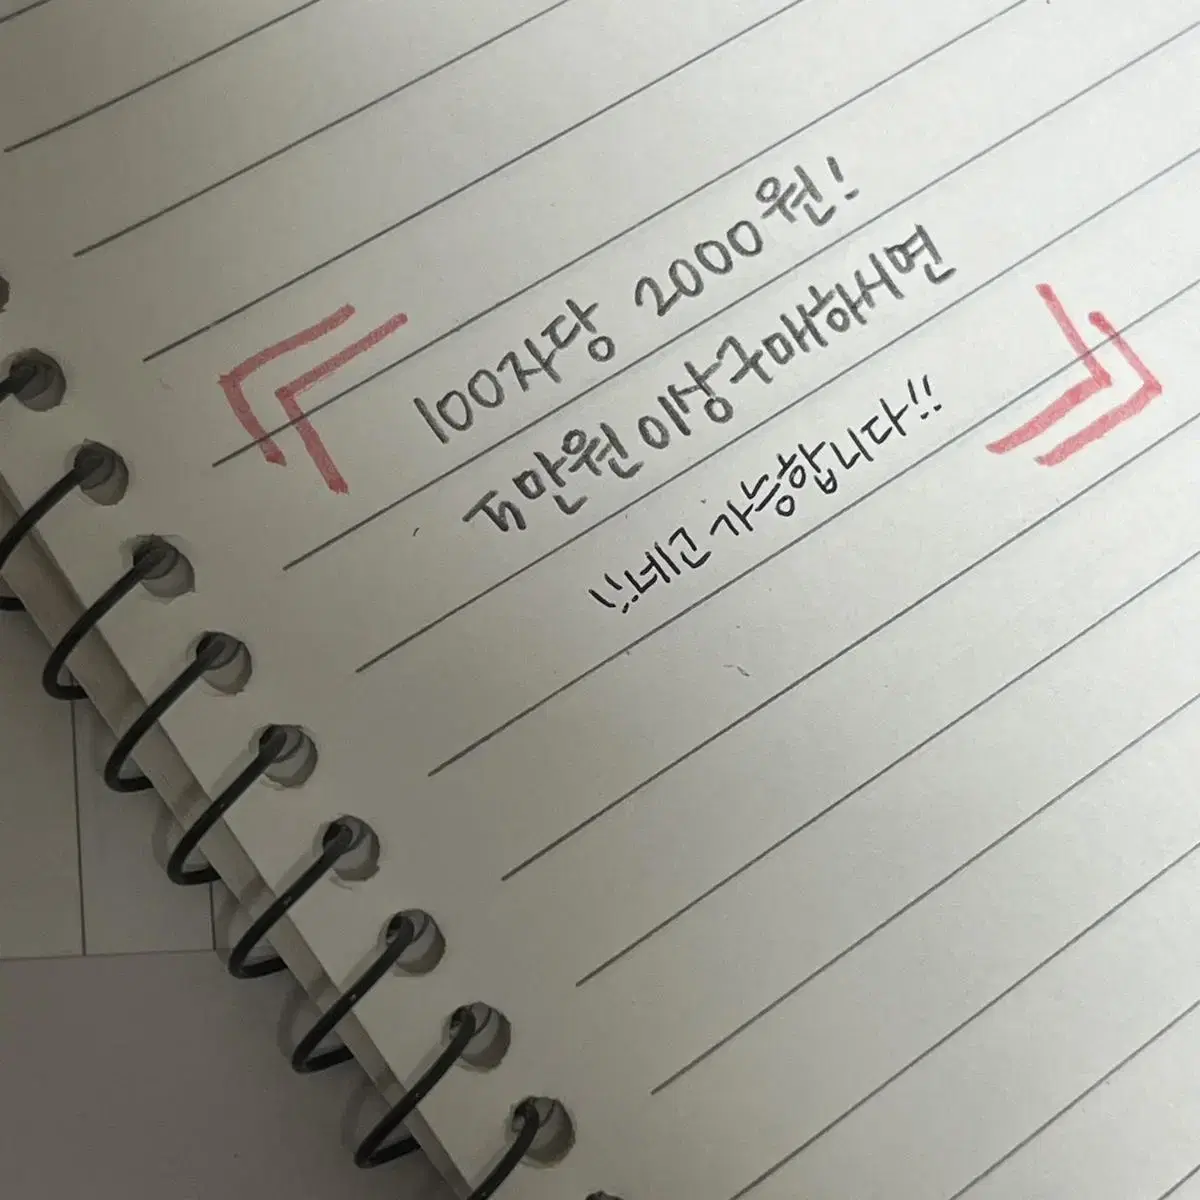 100자당 2000원!
5만원 이상 구매하시면
!!네고 가능합니다!!